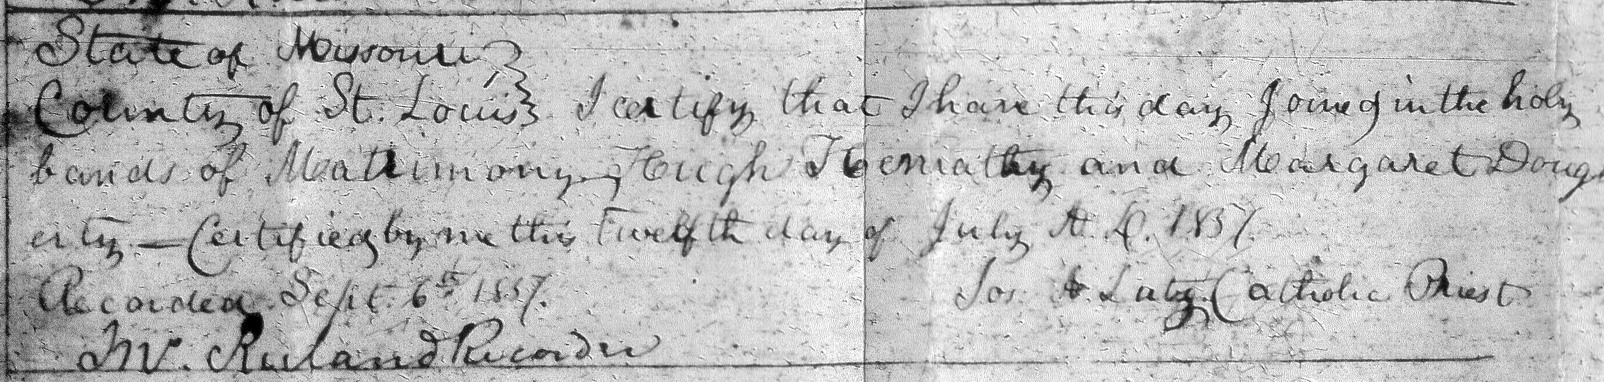 State of Missouri }
County of St. Louis } I certify that I have this day Joined in the holy
bands of Matrimony Hugh and Margaret Dough
erty — Certified by me this Twelfth day of July A. D. 1837.
Recorded Sept. 6th 1837. Jos. A. Lutz Catholic Priest
Jno. Ruland Recorder